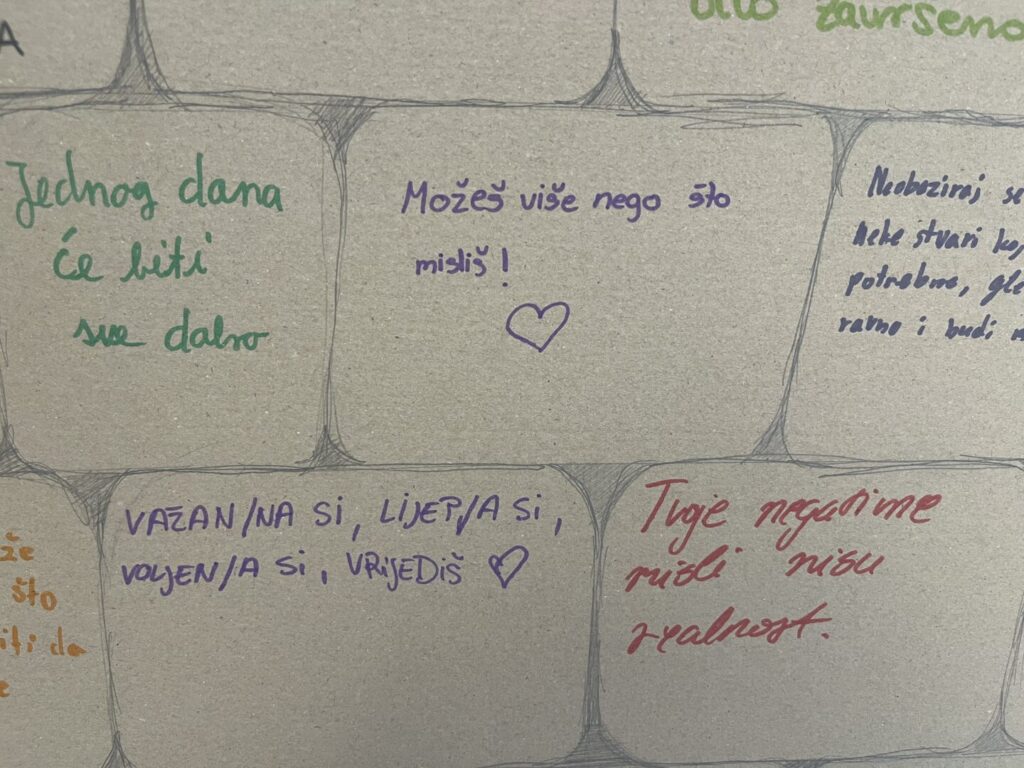 A
bilo završeno
Jednog dana
će biti
sve dobro
Možeš više nego što
misliš!
Neobaziraj se
neke stvari
potrebne,
ravno i budi
VAŽAN/NA SI, LIJEP/A SI,
VOLJEN/A SI, VRIJEDIŠ
Tvoje negativne
misli nisu
realnost.
že
što
iti da
e